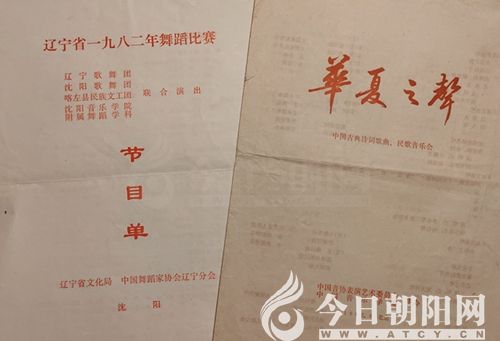 辽宁省一九八二年舞蹈比赛
辽宁歌舞团
沈阳歌舞团
喀左县民族文工团 联合演出
沈阳音乐学院
附属舞蹈学科
节目单
辽宁省文化局 中国舞蹈家协会辽宁分会
沈阳
華夏之聲
中国古典诗词歌曲、民歌音乐会
中国音协表演艺术委员会
今日朝阳网
WWW.ATCY.CN